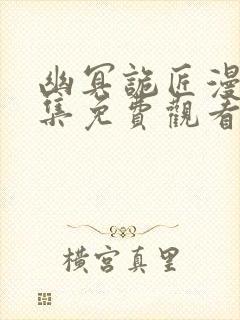 幽冥詭匠漫
集免費觀看
橫宮真里